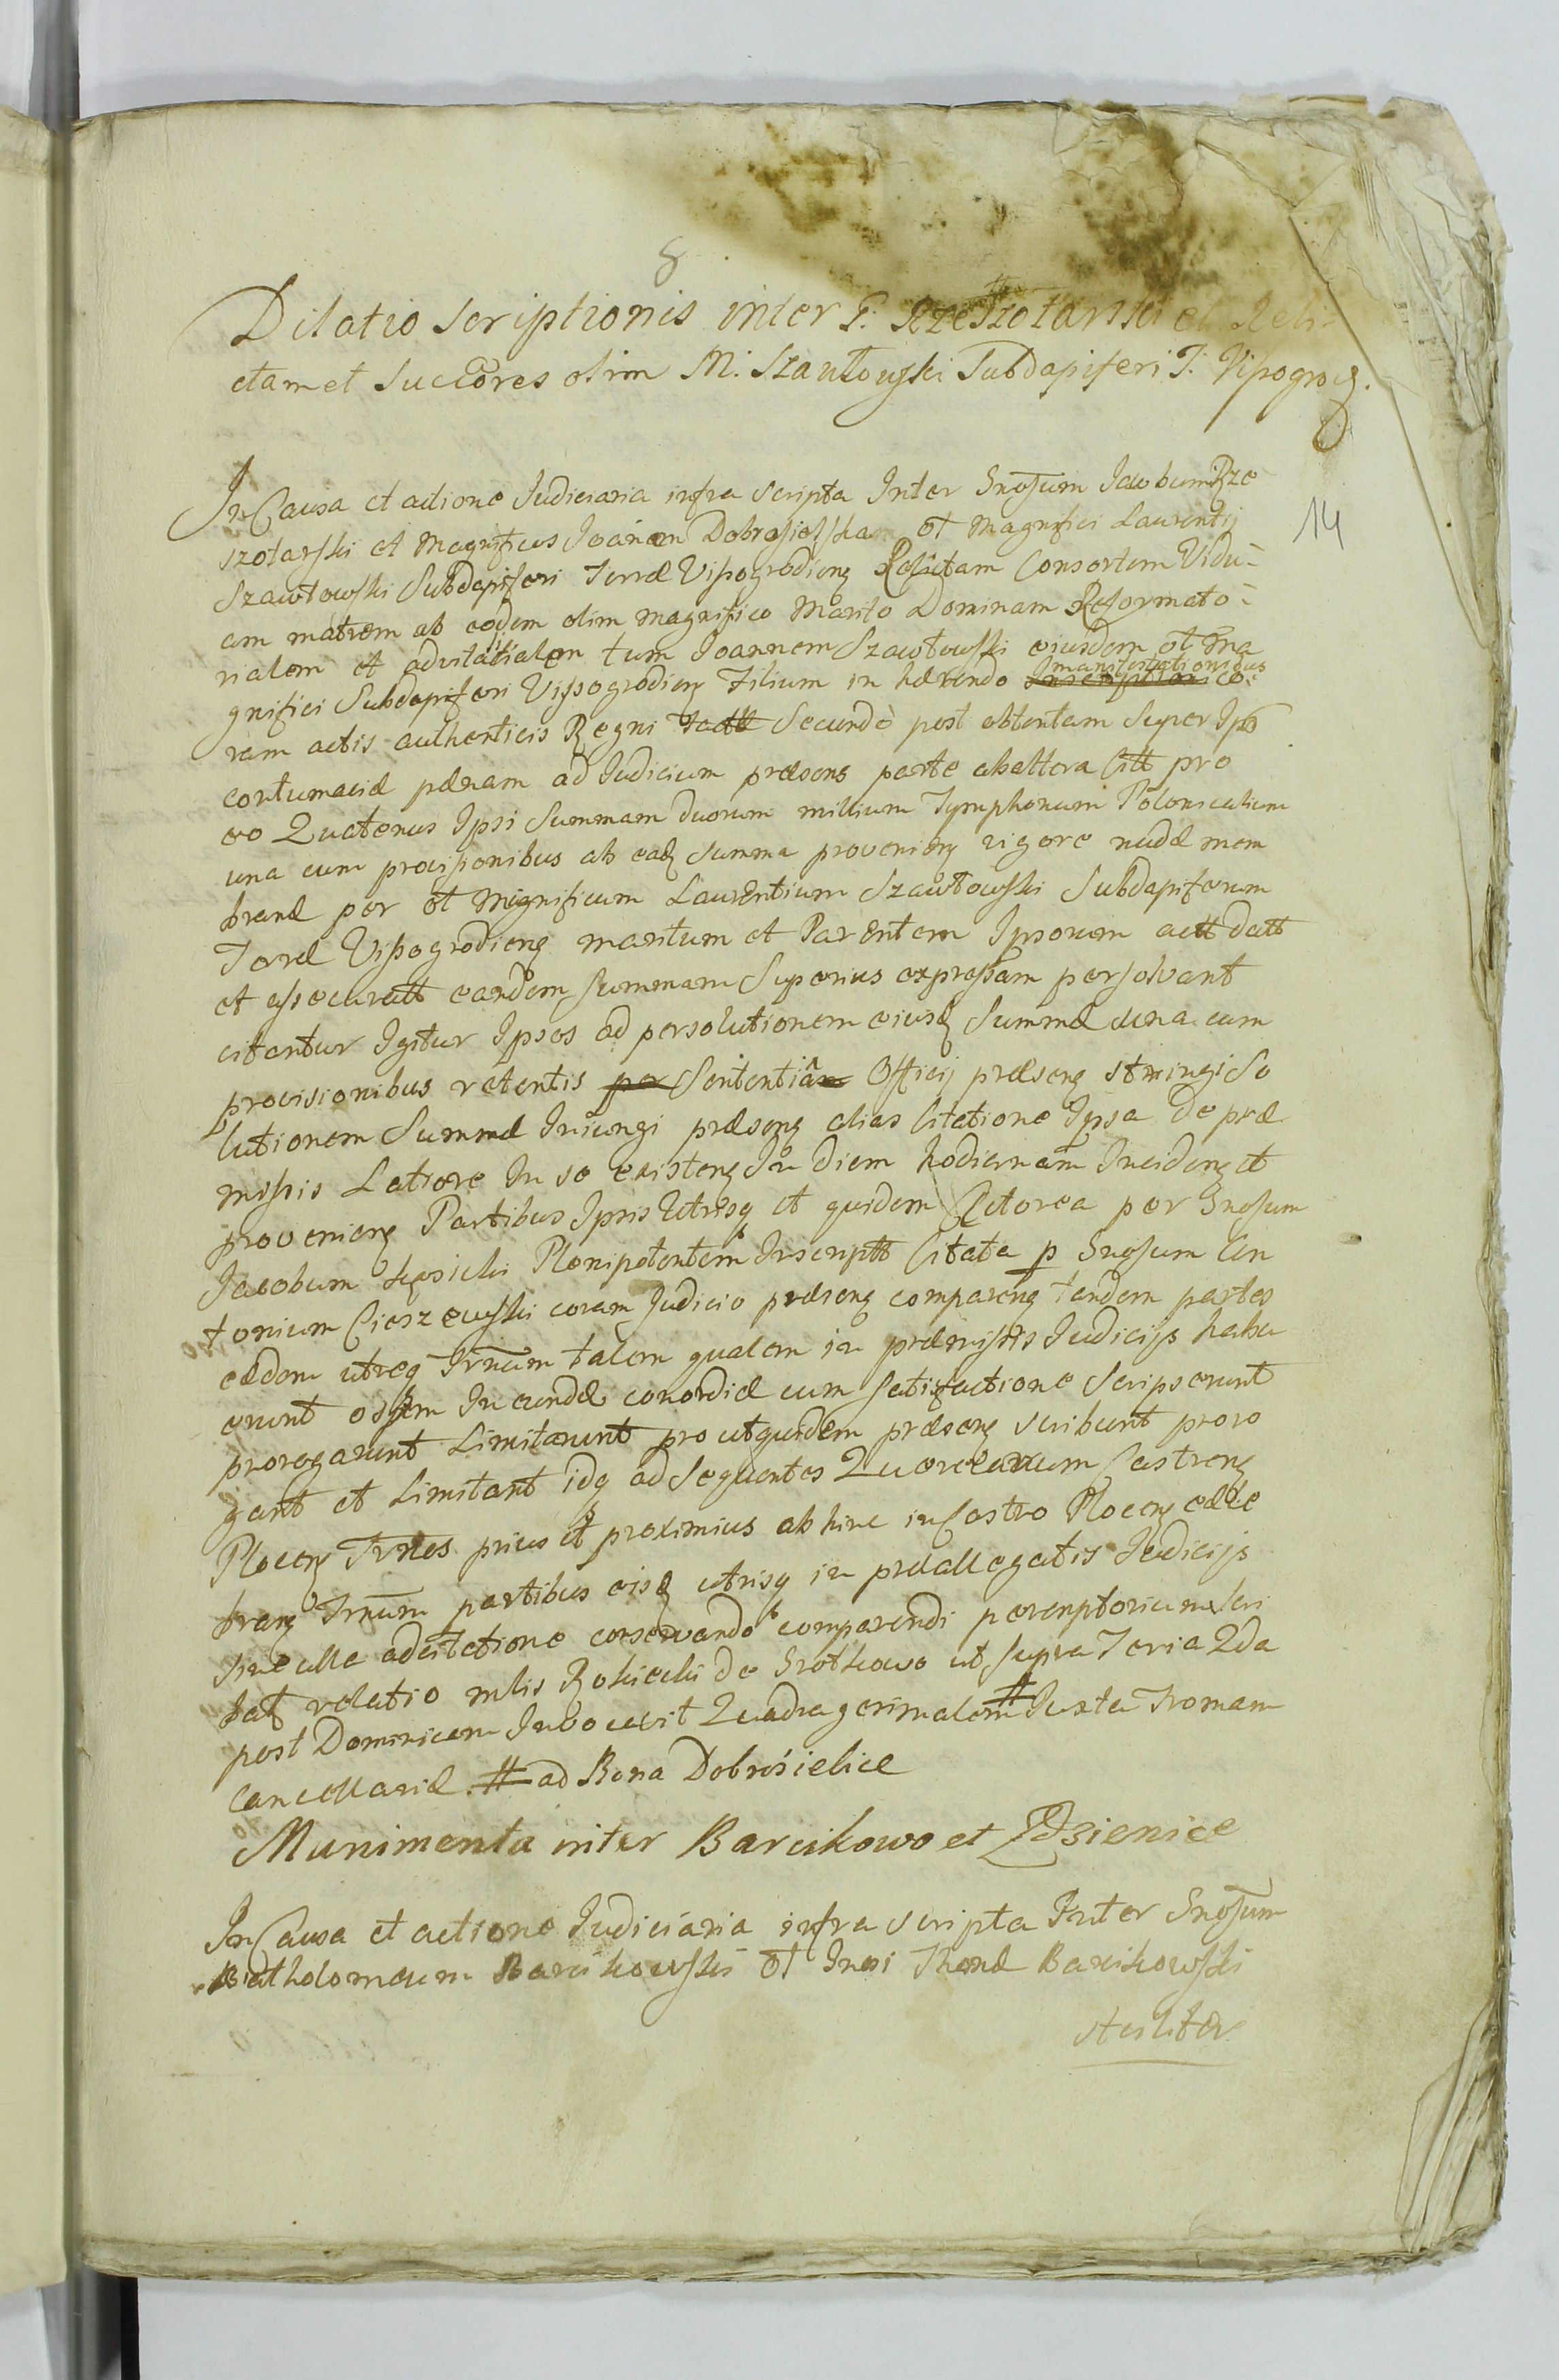 8
Dilatio scriptionis inter G: Rzeszotarski et Reli
ctam et Succōres olim M. Szawłowski Subdapiferi T: Vissogrod.
14
In Causa et actione Judiciaria infra scripta Inter Gnosum Jacobum Rze
szotarski et Magnificos Joānem Dobrosielska et Magnifici Laurentij
Szawłowski Subdapiferi Terræ Vissogrodiens Relictam Consortem Vidu
am matrem ab eodem olim magnifico Marito Dominam Reformato
rialem et advitalitialem tum Joannem Szawłowski eiusdem ol Ma
gnifici Subdapiferi Vissogrodiens Filium in hærendo Inscriptioni manifestationibus co
ram actis authenticis Regni factæ Secundò post obtentam super Ipsos
contumaciæ pænam ad Judicium præsens parte ab altera Citt pro
eo Quatenus Ipsi Summam duorum millium Tymphonum Polonicalium
una cum provisionibus ab eadq summa provenienq vigore nudæ mem
branæ per ol Magnificum Laurentium Szawłowski Subdapiferum
Terræ Vissogrodiens maritum et Parentem Ipsorum actt datt
et assecuratt eandem summam Superius expressam persolvant
citantur Igitur Ipsos ad persolutionem eiusdq Summæ una cum
provisionibus retentis per Sententiam Officij præsenq stringi So
lutionem Summæ Iniungi præsenq alias Citatione Ipsa de præ
missis Latiore In se existenq In diem hodiernam Incidenq et
provenienq Partibus Ipsis Utrisq et quidem Actorea per Gnosum
Jacobum Plenipotentem Inscriptt Citata p Gnosum An
tonium Cieszewski coram Judicio præsenq comparenq tandem partes
eædem utræq Trnūm talem qualem in præmissis Judicijs habu
erunt odiem In eundæ concordiæ cum satisfactione scripserunt
prorogarunt Limitarunt pro ut quidem præsenq scribunt proro
gant et Limitant idq ad Sequentes Querelarum Castrenq
Plocenq Trnōs prius et proximius ab hinc in Castro Plocenq cele
branq Trnūm partibus eisdq utrisq in præallegatis Judicijs
sine ulla adcitatione conservando comparendi peremptorium scri
bat relatio mlis Rokicki de Srotkowo ut supra Feria 2da
post Dominicam Invocavit Quadragesimalem # Iuxta Tromam
Cancellariæ. # ad Bona Dobrosielice
Munimenta inter Barcikowo et Zdzienice
In Causa et actione Judiciaria infra scripta Inter Gnosum
Bartholomeum Barcikowski ol Gnosi Thomæ Barcikowski